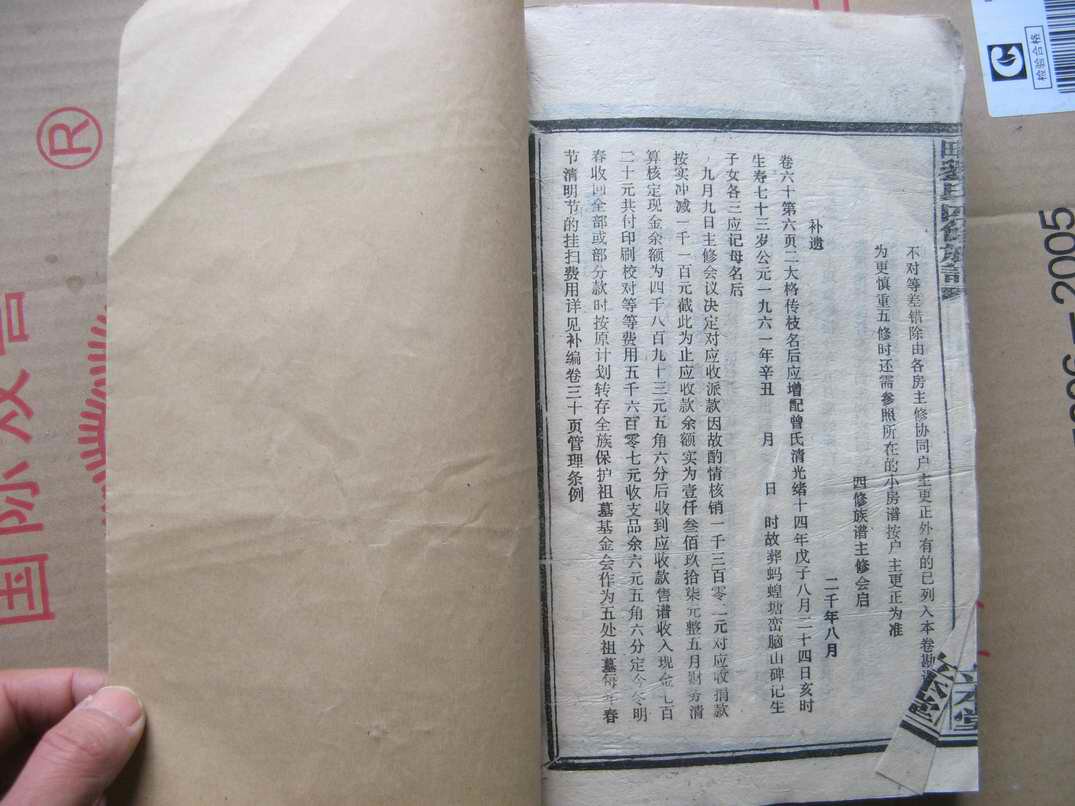 不对等差错除由各房主修协同户主更正外有的已列入本卷勘
为更慎重五修时还需参照所在的小房谱按户主更正为准
四修族谱主修会启
二千年八月
补遗
卷六十第六页二大格传枝名后应增配曾氏清光绪十四年戊子八月二十四日亥时
生寿七十三岁公元一九六一年辛丑 月 日 时故葬蚂蝗塘峦脑山碑记生
子女各三应记母名后
九月九日主修会议决定对应收派款因故酌情核销一千三百零二元对应收捐款
按实冲减一千一百元截此为止应收款余额实为壹仟叁佰玖拾柒元整五月财务清
算核定现金余额为四千八百九十三元五角六分后收到应收款售谱收入现金七百
二十元共付印刷校对等等费用五千六百零七元收支品余六元五角六分定今冬明
春收回全部或部分款时按原计划转存全族保护祖墓基金会作为五处祖墓每年春
节清明节的挂扫费用详见补编卷三十页管理条例
氏四修族谱
立本堂
国际
R
检验合格
2005